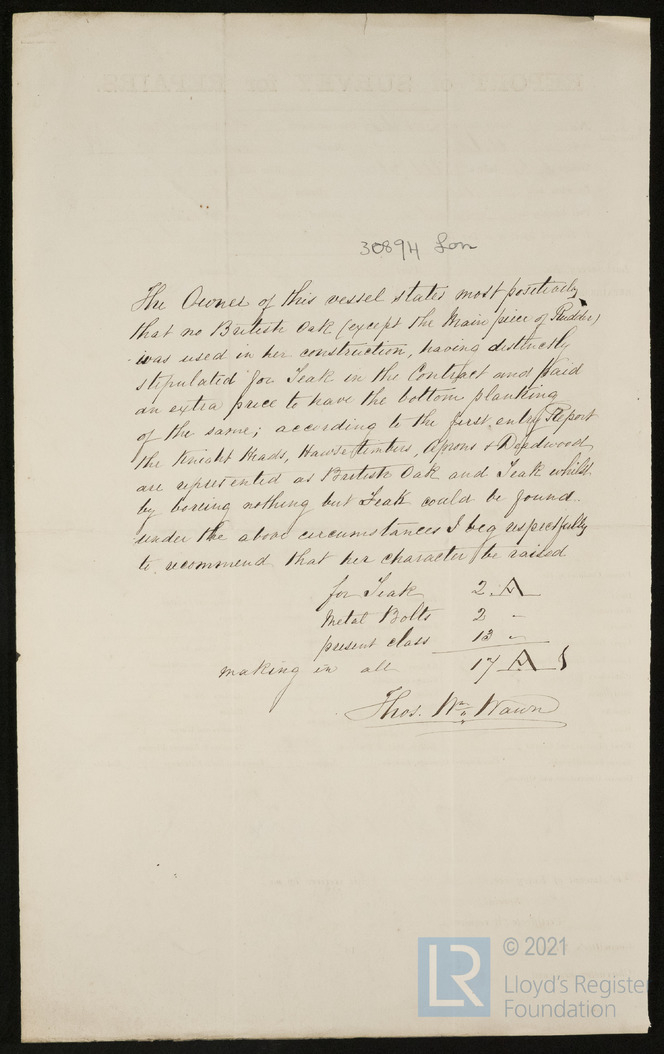 30894 Lon
The Owner of this vessel states most positively
that no British Oak (except the Main piece of Rudder)
was used in her construction, having distinctly
stipulated for Teak in the Contract and paid
an extra price to have the bottom planking
of the same; according to the first entry Report
the Knight Heads, Hawsetimbers, Aprons & Deadwood
are represented as British Oak and Teak whilst
by boreing nothing but Teak could be found.
under the above circumstances I beg respectfully
to recommend that her character be raised
for Teak 2 A
Metal Bolts 2 "
present class 13 "
making in all 17 A
Thos. Wm Wawn
REPORT of SURVEY for REPAIRS.
LR
© 2021
Lloyd's Register
Foundation